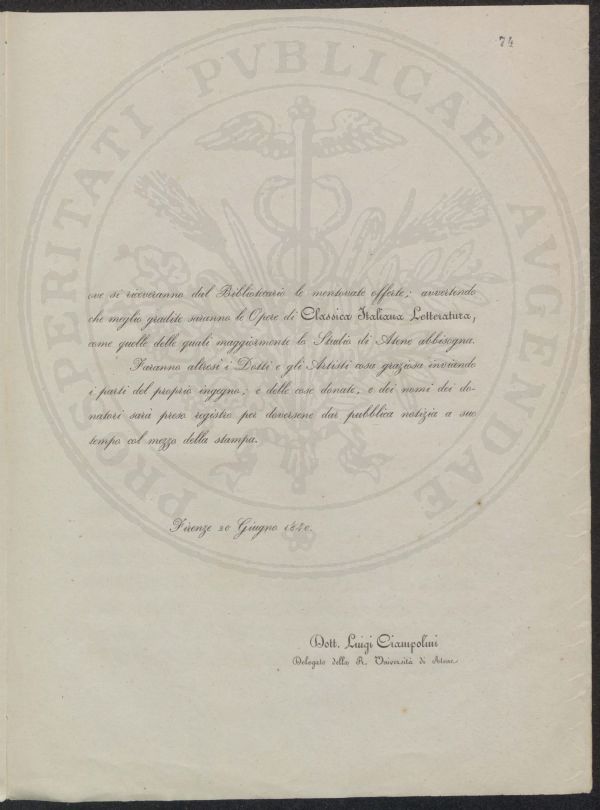 74
PROSPERITATI PVBLICAE AVGENDAE
ove si riceveranno dal Bibliotecario le mentovate offerte; avvertendo
che meglio gradite saranno le Opere di Classica Italiana Letteratura,
come quelle delle quali maggiormente lo Studio di Atene abbisogna.
Faranno altresì i Dotti e gli Artisti cosa graziosa inviando
i parti del proprio ingegno; e delle cose donate, e dei nomi dei do-
natori sarà preso registro per doversene dar pubblica notizia a suo
tempo col mezzo della stampa.
Firenze 20 Giugno 1840.
Dott. Luigi Ciampolini
Delegato della R. Università di Atene